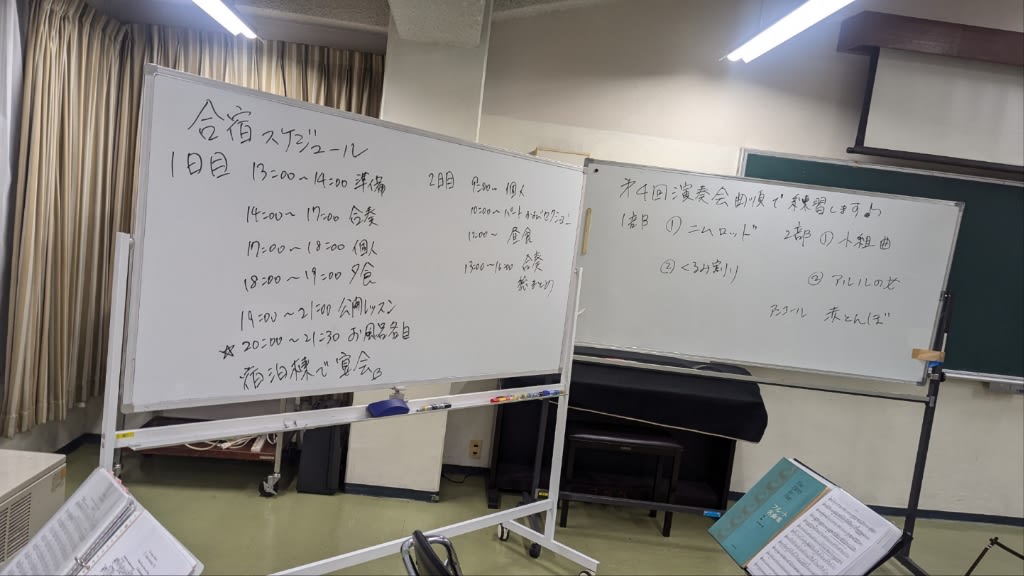 合宿スケジュール
1日目 13:00〜14:00 準備
14:00〜17:00 合奏
17:00〜18:00 個人
18:00〜19:00 夕食
19:00〜21:00 公開レッスン
☆20:00〜21:30 お風呂各自
宿泊棟で宴会
2日目 9:00〜 個人
10:00〜 パート
セクション
12:00〜 昼食
13:00〜16:00 合奏
第4回演奏会曲順で練習します♪
1部 ① ニムロッド
② くるみ割り
2部 ① 小組曲
② アルルの女
アンコール 赤とんぼ